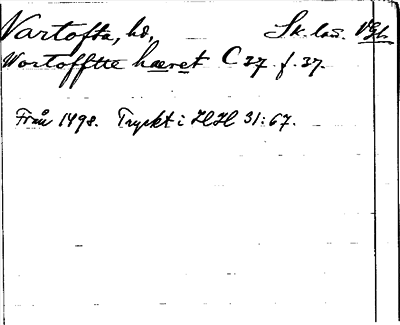 Vartofta, hd, Sk. län. Vgl.
Wortofftte hæret C 27 f. 37.
Från 1498. Tryckt i HH 31:67.